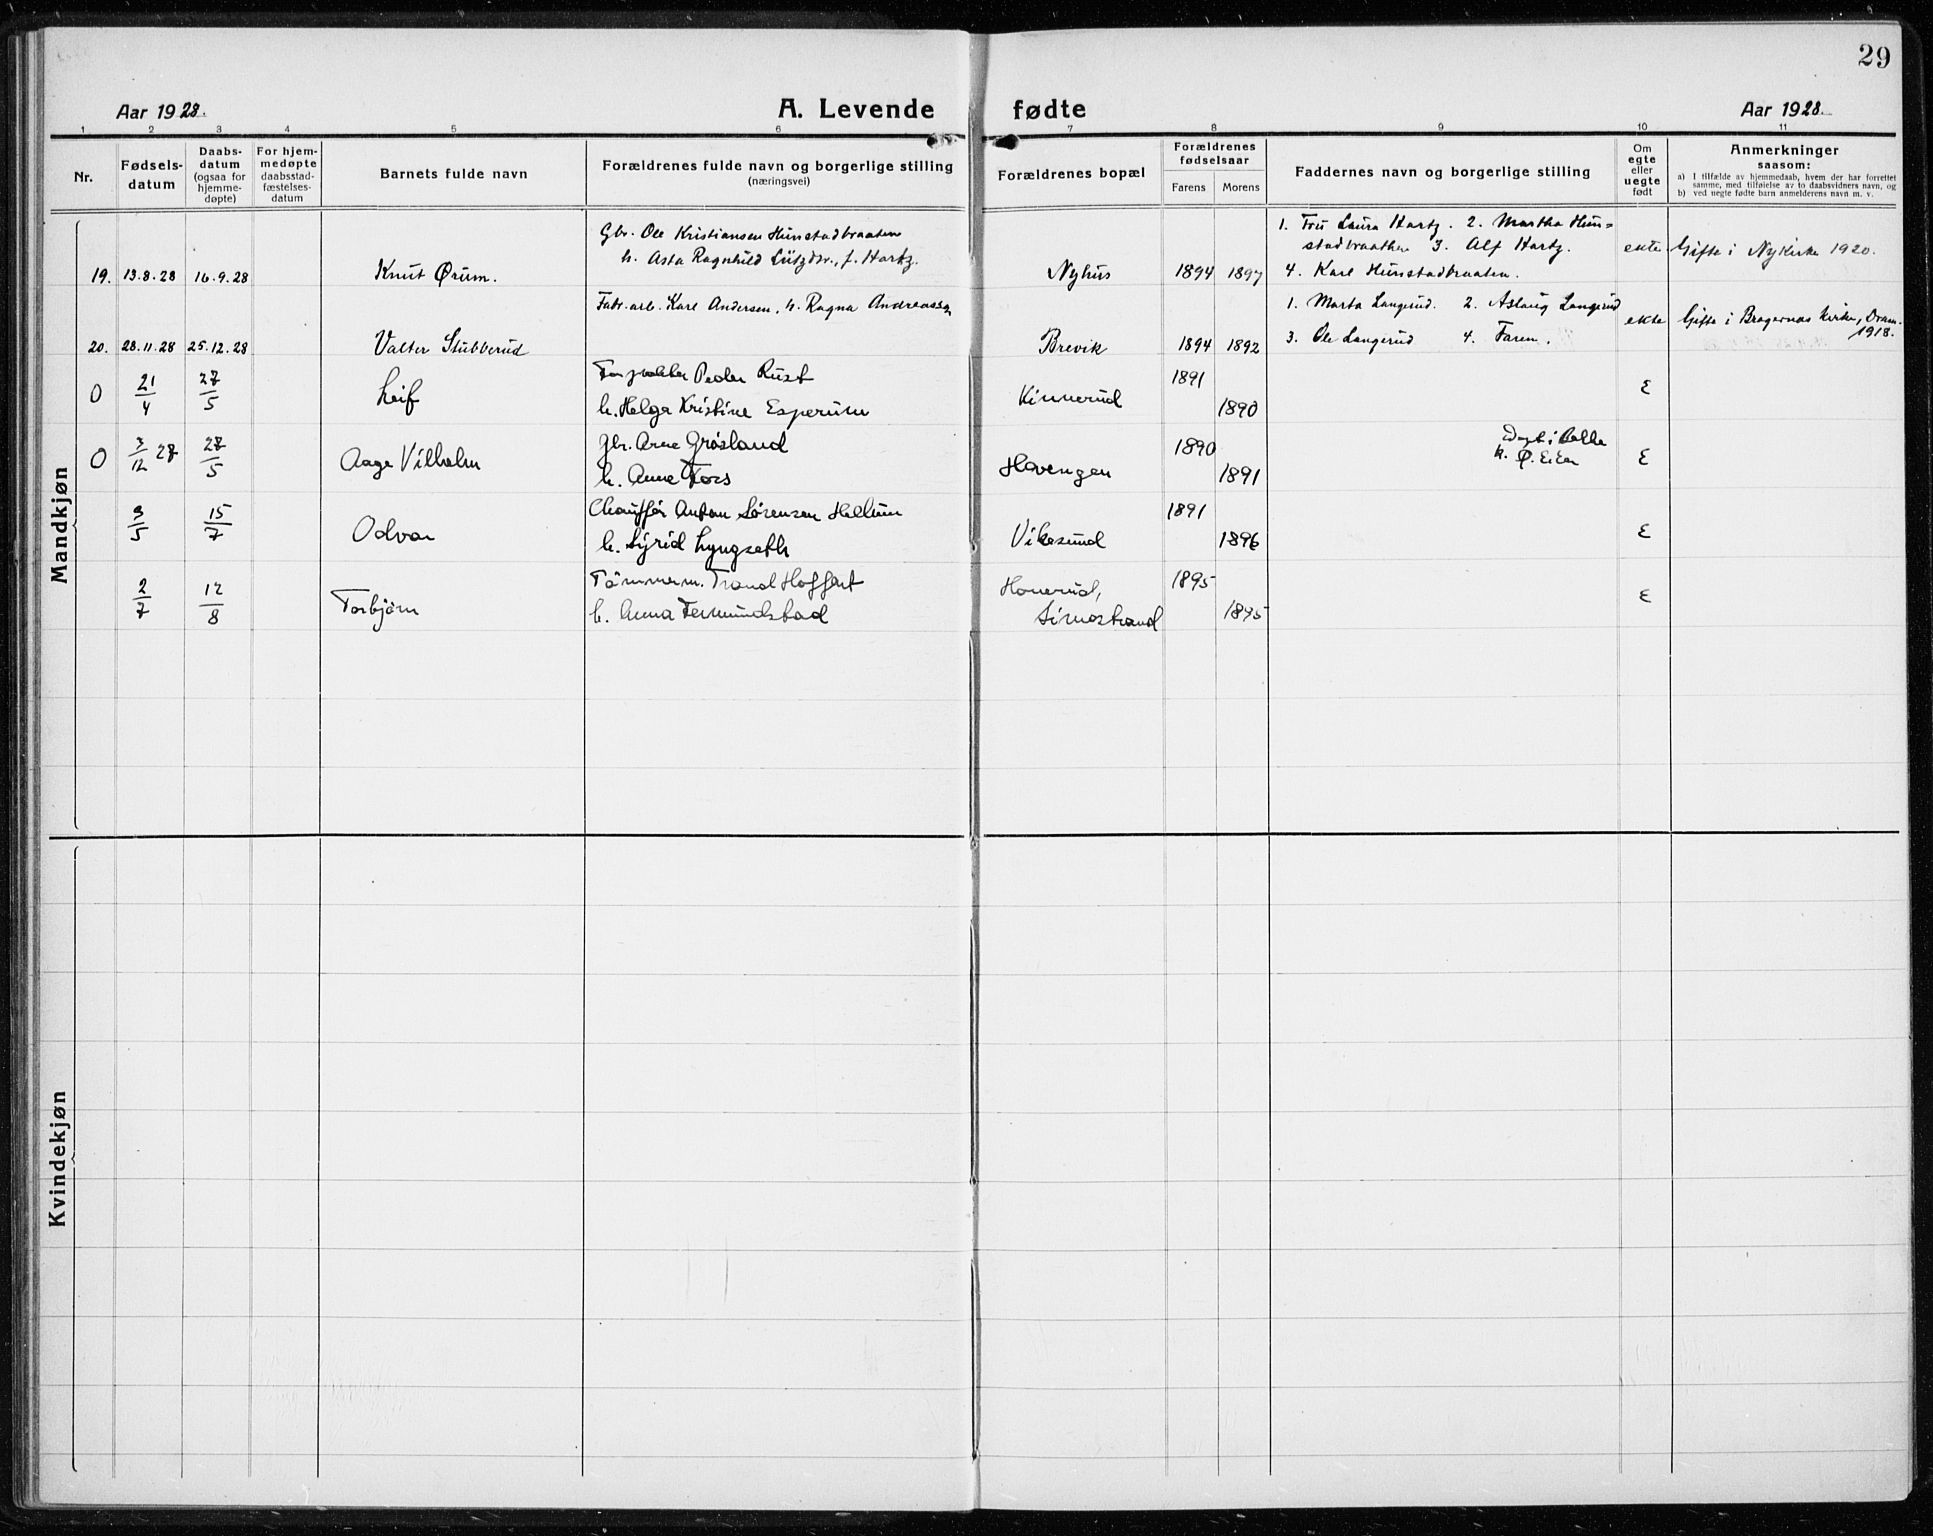 29
Aar 1928.
A. Levende fødte
Aar 1928.
1 2 3 4 5 6 7 8 9 10 11
Nr.
Fødsels-
datum
Daabs-
datum
(ogsaa for
hjemme-
døpte)
For hjem-
medøpte
daabsstad-
fæstelses-
datum
Barnets fulde navn
Forældrenes fulde navn og borgerlige stilling
(næringsvei)
Forældrenes bopæl
Forældrenes
fødselsaar
Farens Morens
Faddernes navn og borgerlige stilling
Om
egte
eller
uegte
født
Anmerkninger
saasom:
a) I tilfælde av hjemmedaab, hvem der har forrettet
samme, med tilføielse av to daabsvidners navn, og
b) ved uegte fødte barn anmelderens navn m. v.
Mandkjøn
Gbr. Ole Kristiansen Hunstadbraaten
h. Asta Ragnhild Lützdtr., f. Hartz.
1. Fru Laura Hartz. 2. Martha Hun=
stadbraathen 3. Alf Hartz.
4. Karl Hunstadbraaten.
19. 13.8.28 16.9.28 Knut Ørum. Nyhus 1894 1897 ekte Gifte i Nykirke 1920.
Fabr.arb. Karl Andersen, h. Ragna Andreassen
1. Marta Langerud. 2. Aslaug Langerud
3. Ole Langerud 4. Faren.
20. 28.11.28 25.12.28 Valter Stubberud Brevik 1894 1892 ekte Gifte i Bragernas kirke, Dram.
1918.
0 21/4 27/5 Leif Peder Rust
h. Helga Kristine Esperum
Kinnerud 1891 1890 E
0 3/12 27 28/5 Aage Vilhelm Gbr. Arne Grøsland
h. Anna Fors
Hovengen 1890 1891 Døpt i Bakke
k. Ø. Eiker E
3/5 15/7 Odvar Chauffør Anton Sørensen Hellum
h. Syrid Lyngseth
Vikesund 1891 1896 E
2/7 12/8 Torbjørn Tømmerm. Trond Hoffart
h. Anna Femundstad
Honerud,
Simostrand 1895 1895 E
Kvindekjøn